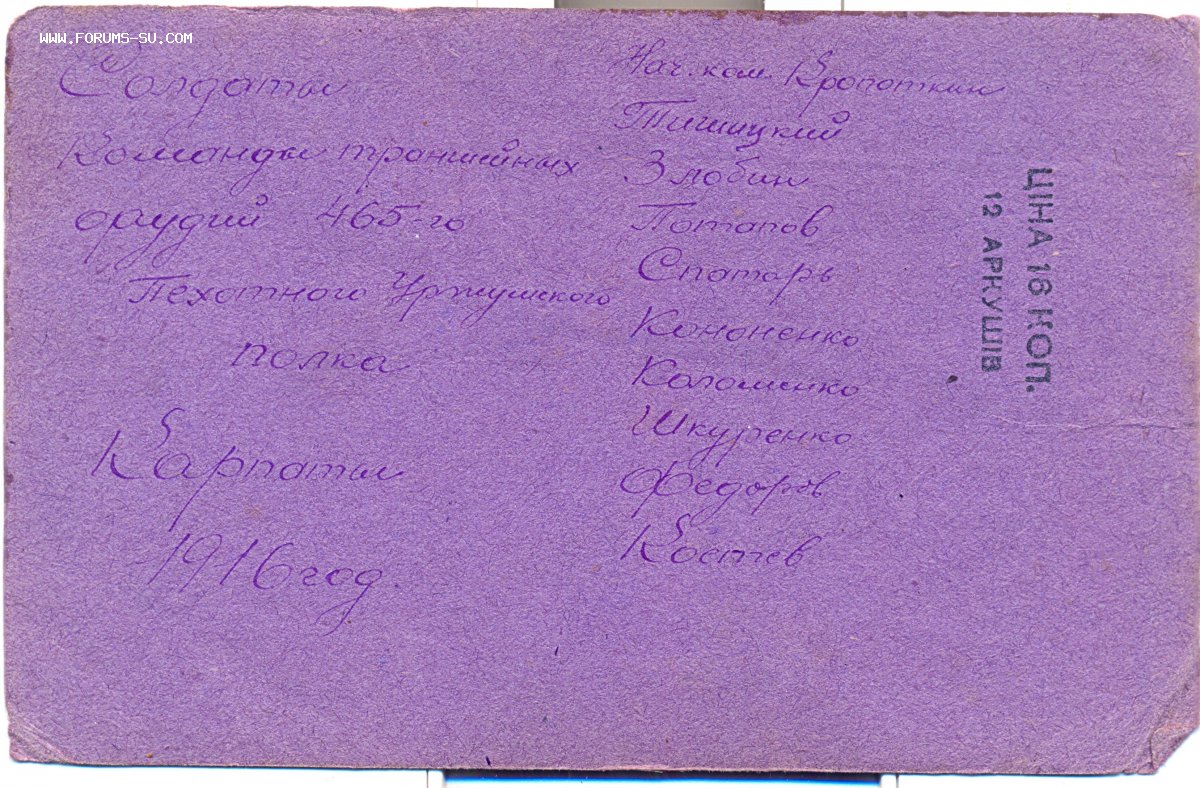 WWW.FORUMS-SU.COM
Солдаты
Команды траншейных
орудий 465-го
Пехотного Уржумского
полка
Карпаты
1916 год.
Нач. ком. Кропоткин
Тишицкий
Злобин
Потапов
Спатарь
Кононенко
Коломенко
Шкуренко
Федоров
Костев
ЦІНА 18 КОП.
12 АРКУШІВ